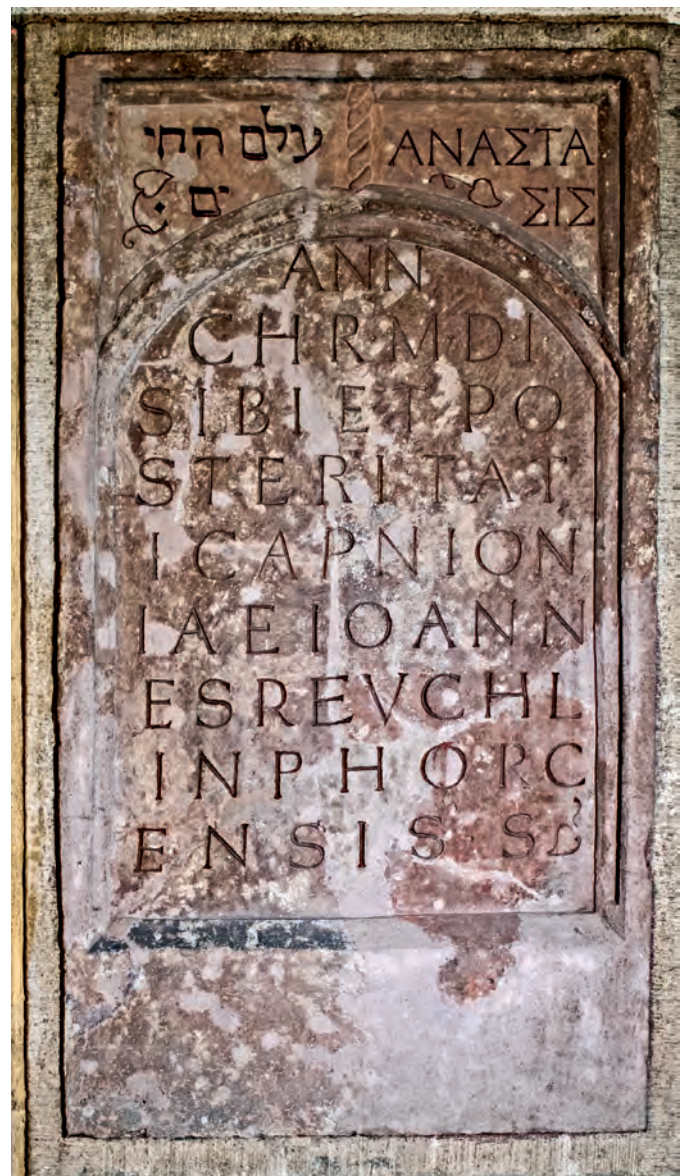 עלם החי
ים
ΑΝΑΣΤΑ
ΣΙΣ
ANN
CHR M·DI
SIBI ET PO
STERITAT
I CAPNION
IAE IOANN
ES REVCHL
IN PHORC
ENSIS S